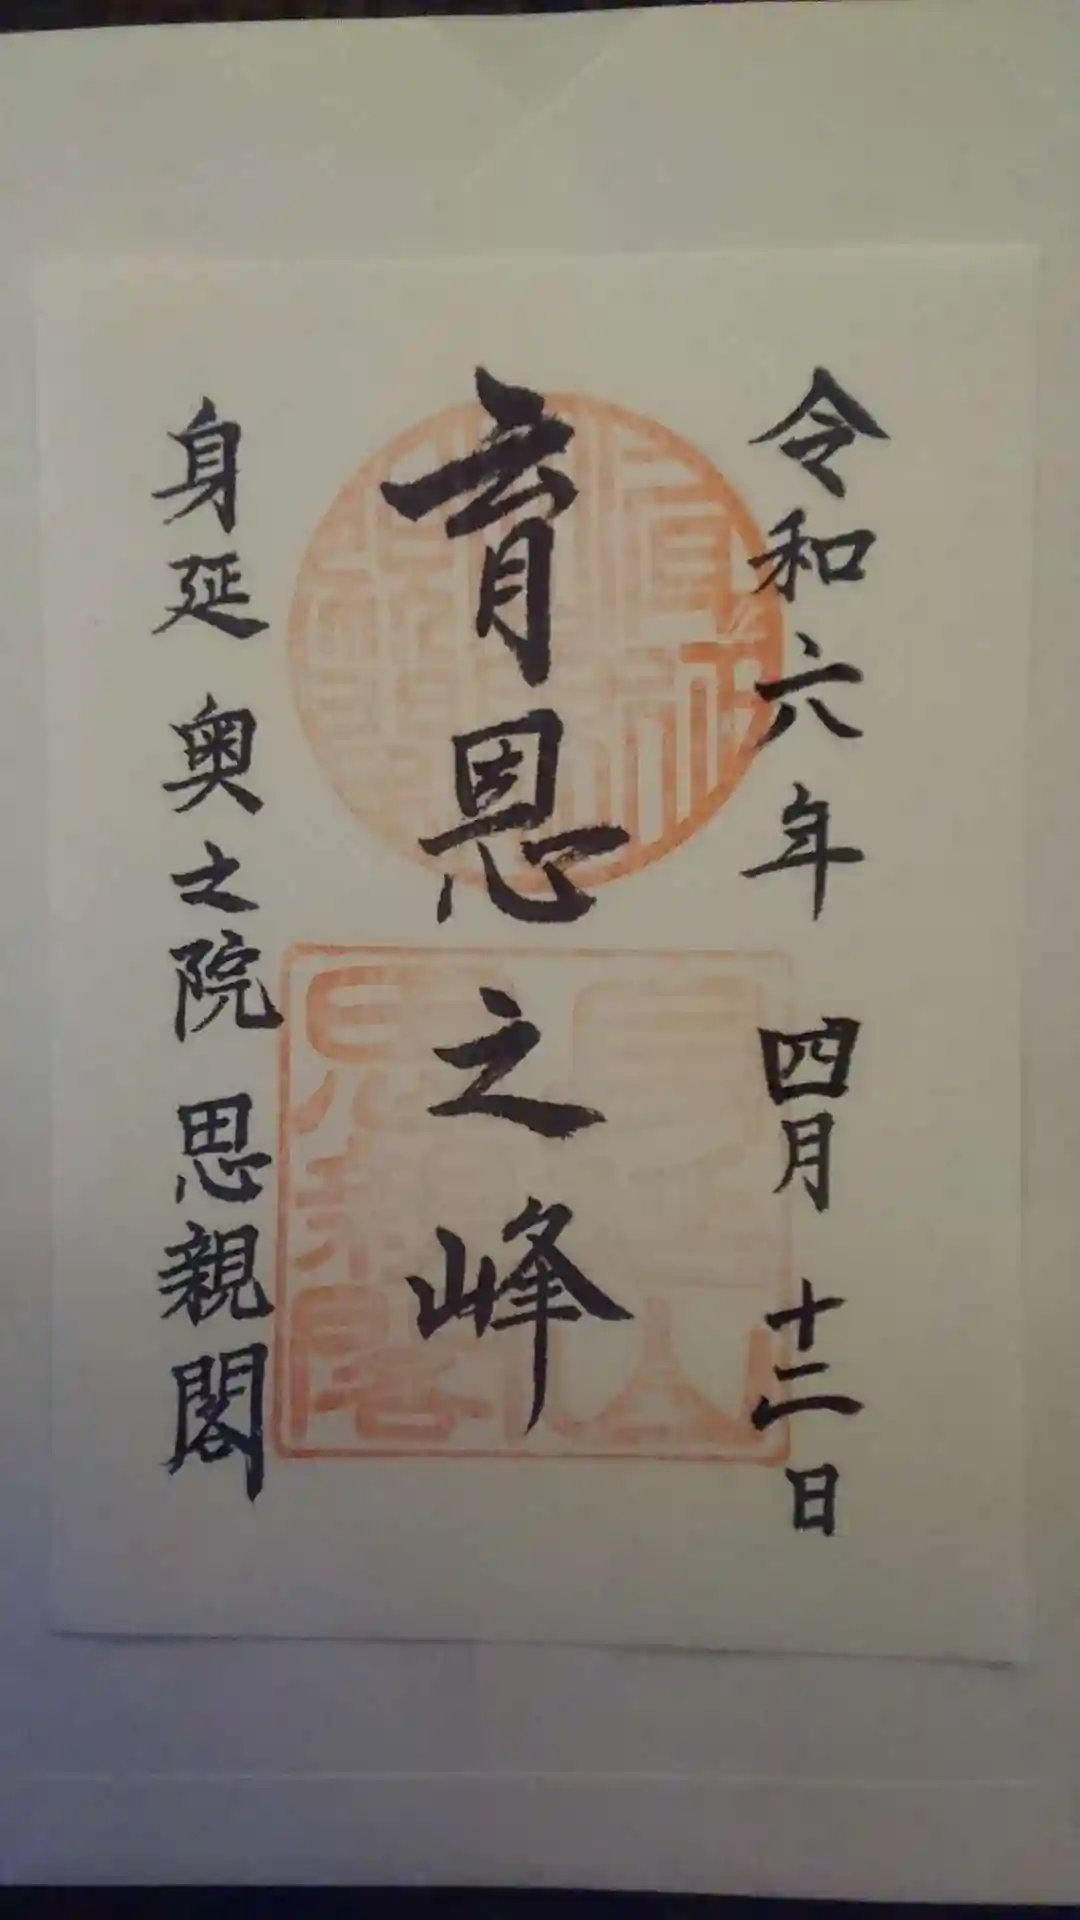 令和六年 四月 十二日
育恩之峰
身延 奥之院 思親閣